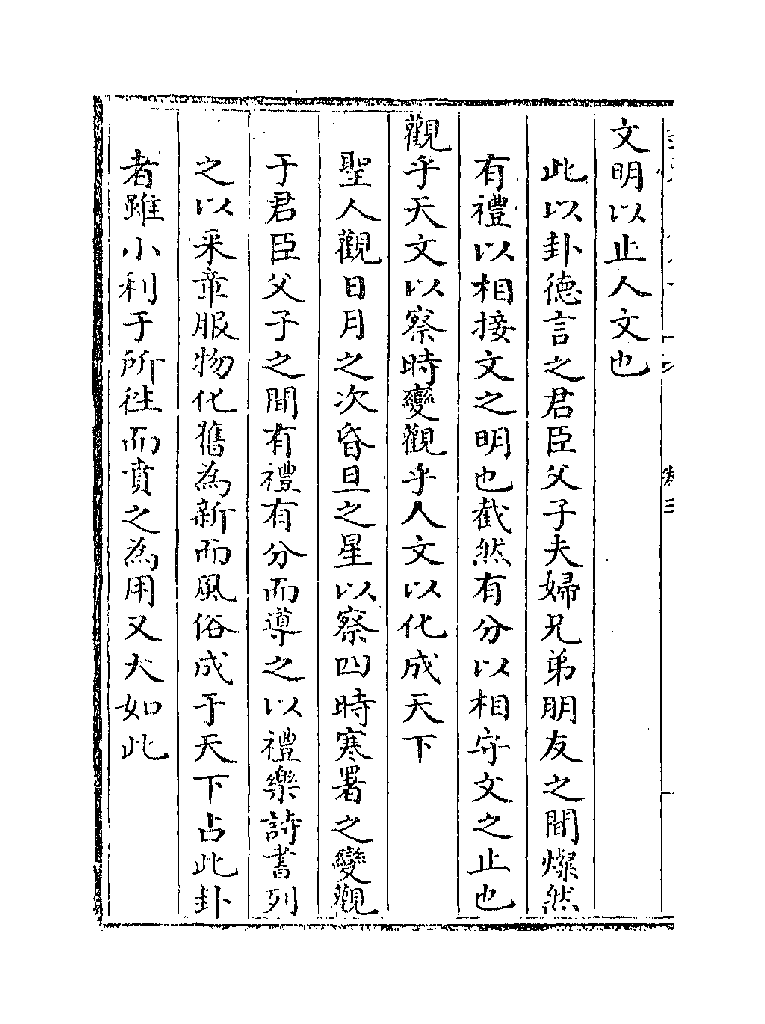 文明以止人文也
此以卦德言之君臣父子夫婦兄弟朋友之間燦然
有禮以相接文之明也截然有分以相守文之止也
觀乎天文以察時變觀乎人文以化成天下
聖人觀日月之次昏旦之星以察四時寒暑之變觀
于君臣父子之間有禮有分而導之以禮樂詩書列
之以采章服物化舊為新而風俗成于天下占此卦
者雖小利于所往而賁之為用又大如此